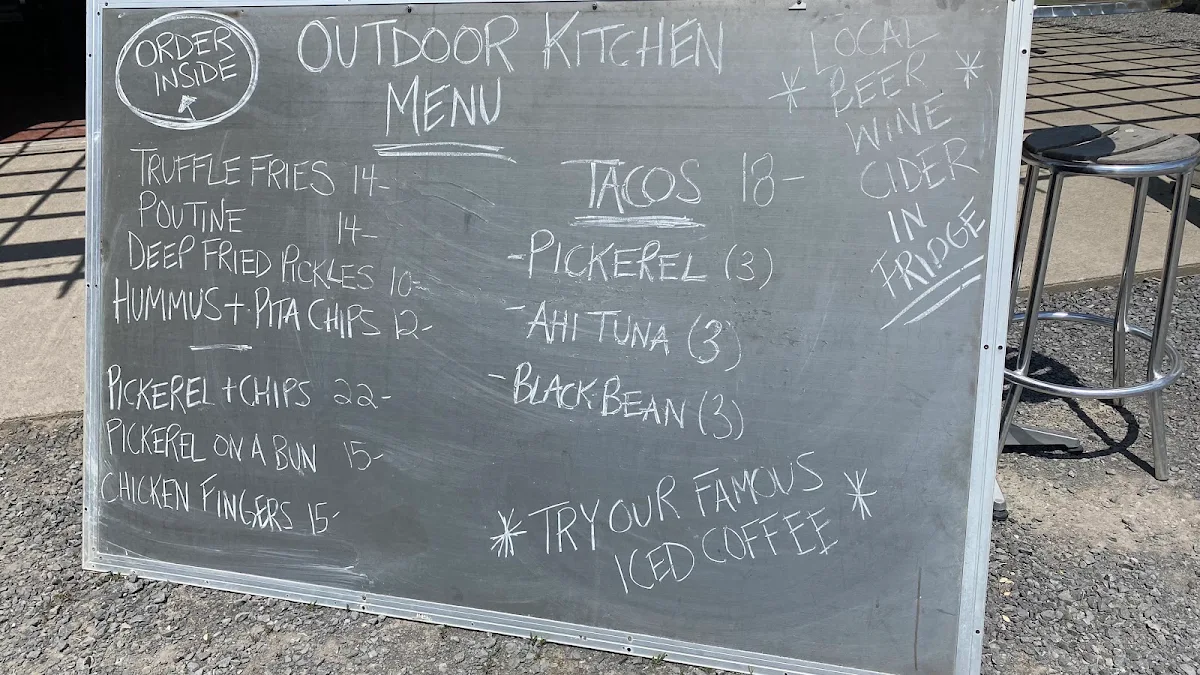 ORDER
INSIDE
OUTDOOR KITCHEN
MENU
TRUFFLE FRIES 14-
POUTINE 14-
DEEP FRIED PICKLES 10-
HUMMUS + PITA CHIPS 12-
PICKEREL + CHIPS 22-
PICKEREL ON A BUN 15-
CHICKEN FINGERS 15-
TACOS 18-
-PICKEREL (3)
-AHI TUNA (3)
-BLACK BEAN (3)
*TRY OUR FAMOUS*
ICED COFFEE
LOCAL
*BEER*
WINE
CIDER
IN
FRIDGE